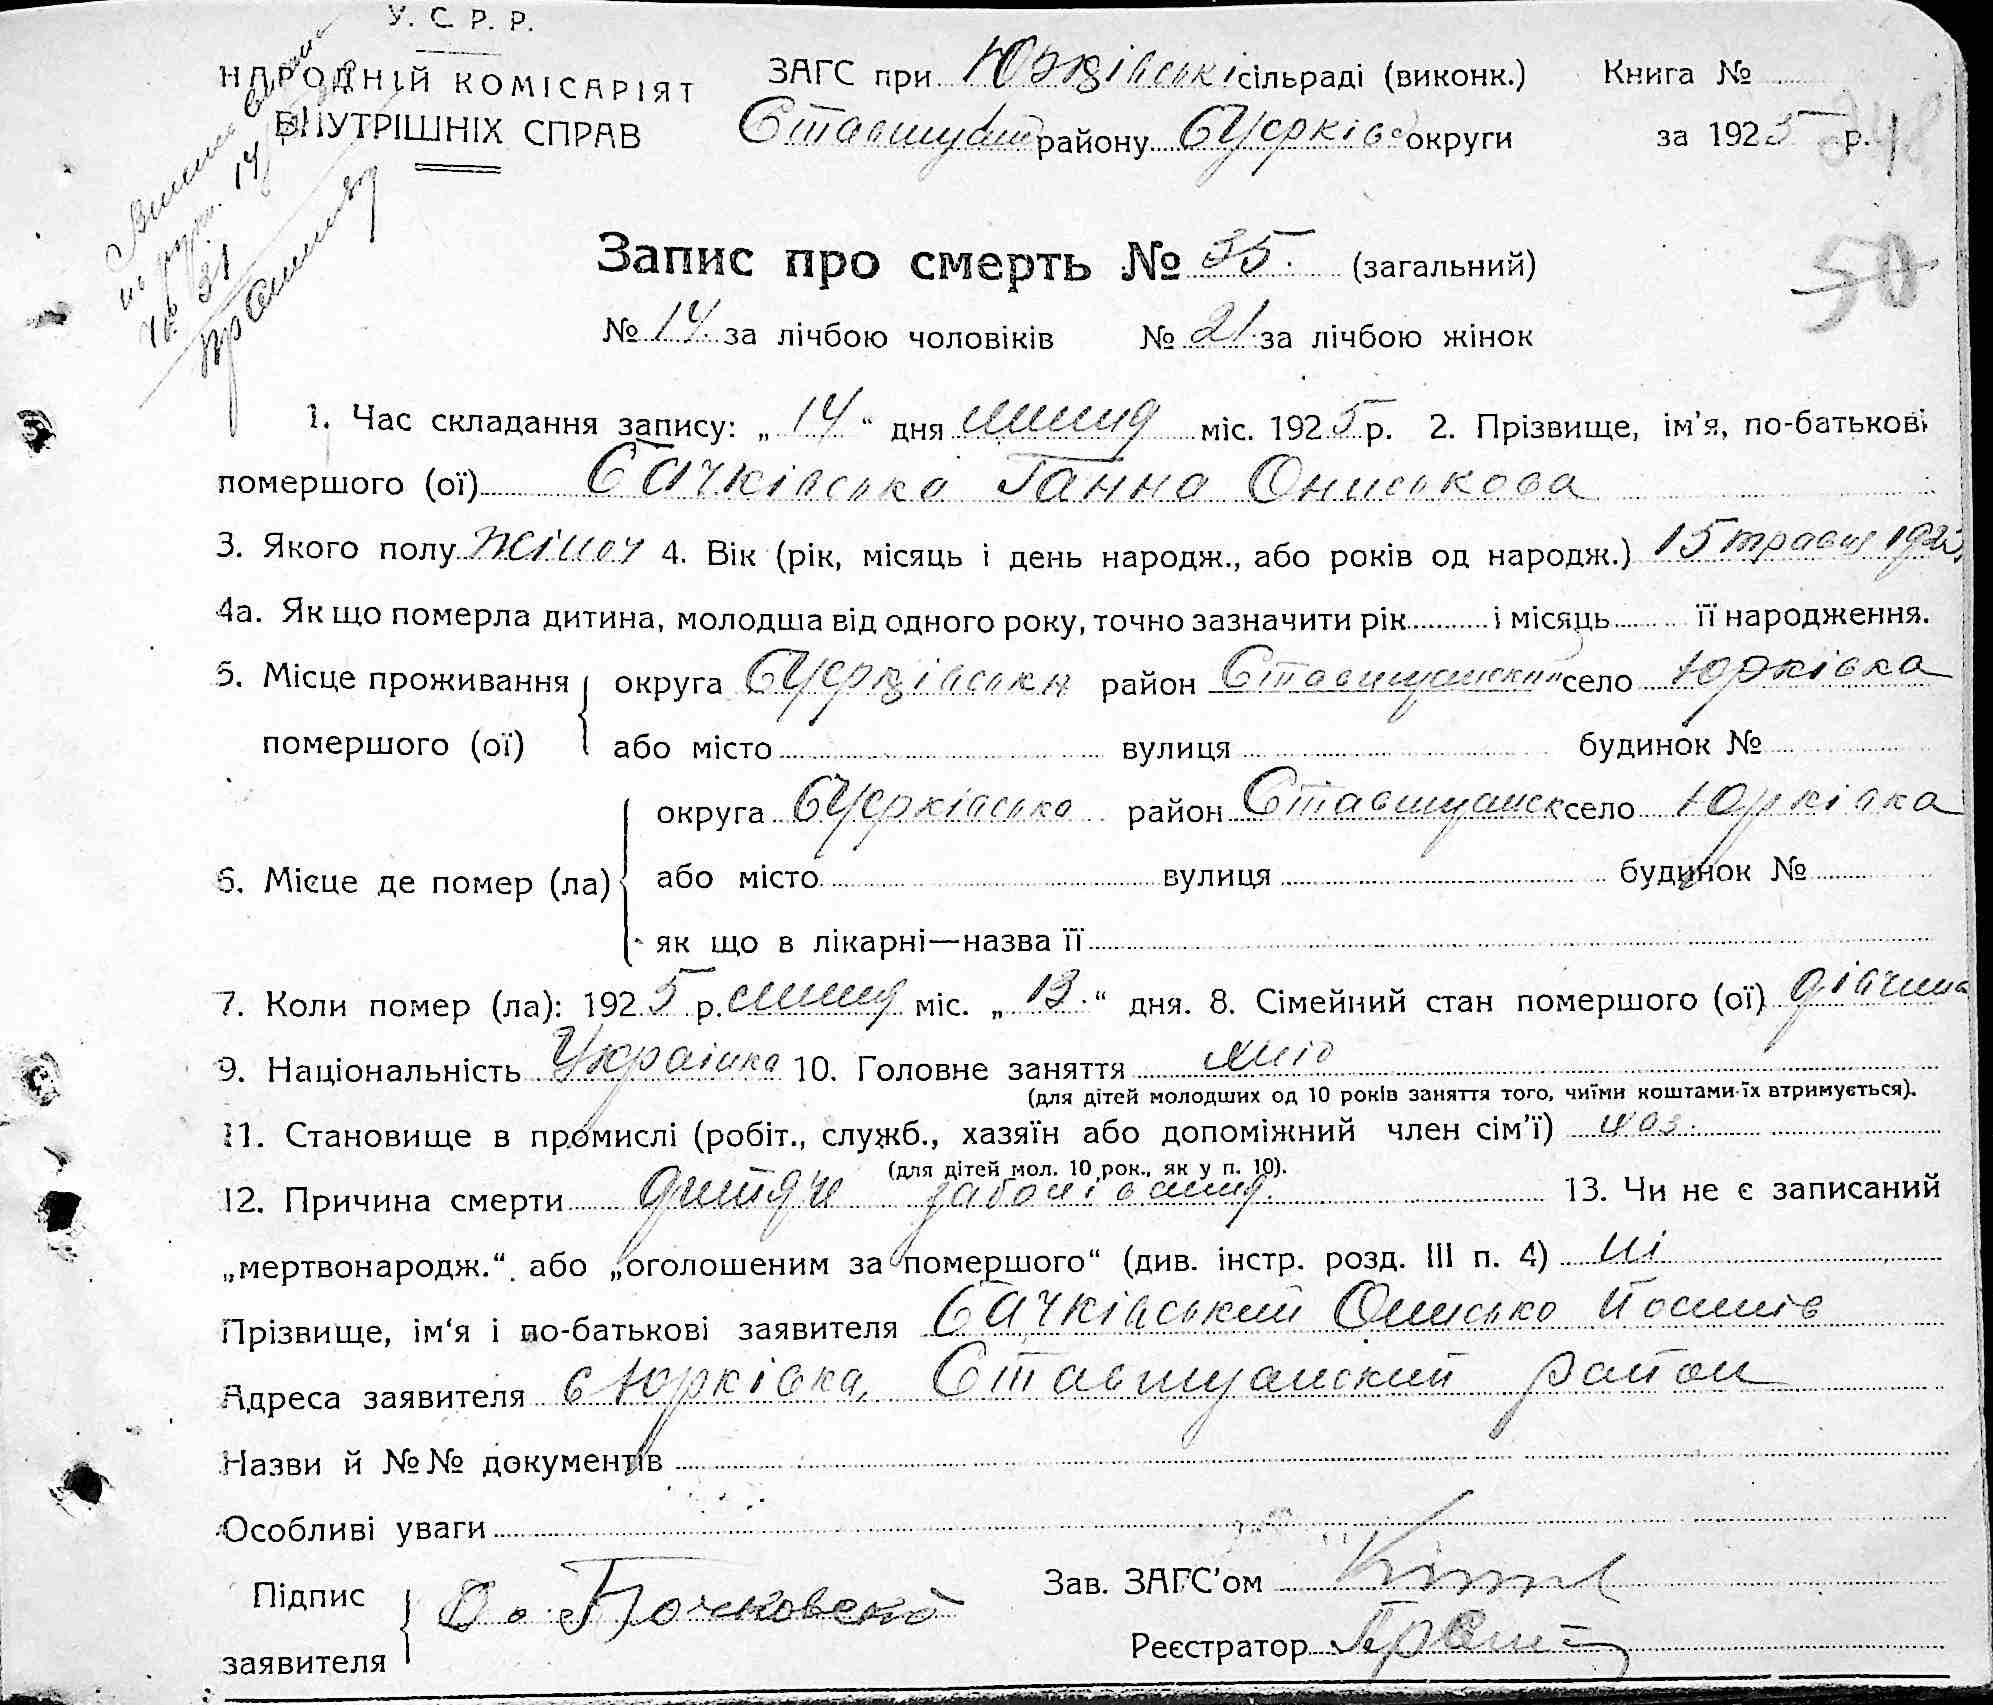 У. С. Р. Р.
НАРОДНІЙ КОМІСАРІЯТ
ВНУТРІШНІХ СПРАВ
ЗАГС при Юрківські сільраді (виконк.) Книга №
району округи за 1925 р.
50
Запис про смерть № 35. (загальний)
№ 14. за лічбою чоловіків № 21. за лічбою жінок
1. Час складання запису: „ 14 “ дня липня міс. 1925 р. 2. Прізвище, ім'я, по-батькові
помершого (ої) Бачківська Ганна Ониськова
3. Якого полу жіноч 4. Вік (рік, місяць і день народж., або років од народж.) 15 травня 1923
4а. Як що померла дитина, молодша від одного року, точно зазначити рік і місяць її народження.
5. Місце проживання округа район село Юрківка
помершого (ої) або місто вулиця будинок №
округа район село Юрківка
6. Місце де помер (ла) або місто вулиця будинок №
як що в лікарні—назва її
7. Коли помер (ла): 1925 р. липня міс. „ 13. “ дня. 8. Сімейний стан помершого (ої) дівчина
9. Національність Українка 10. Головне заняття
(для дітей молодших од 10 років заняття того, чиїми коштами їх втримується).
11. Становище в промислі (робіт., служб., хазяїн або допоміжний член сім'ї) хаз.
(для дітей мол. 10 рок., як у п. 10).
12. Причина смерти дитяче заболівання. 13. Чи не є записаний
„мертвонародж.“ або „оголошеним за помершого“ (див. інстр. розд. III п. 4) ні
Прізвище, ім'я і по-батькові заявителя Бачківський Онисько Йосипів
Адреса заявителя с Юрківка, район
Назви й №№ документів
Особливі уваги
Підпис
заявителя
Бочковский
Зав. ЗАГС'ом
Реєстратор